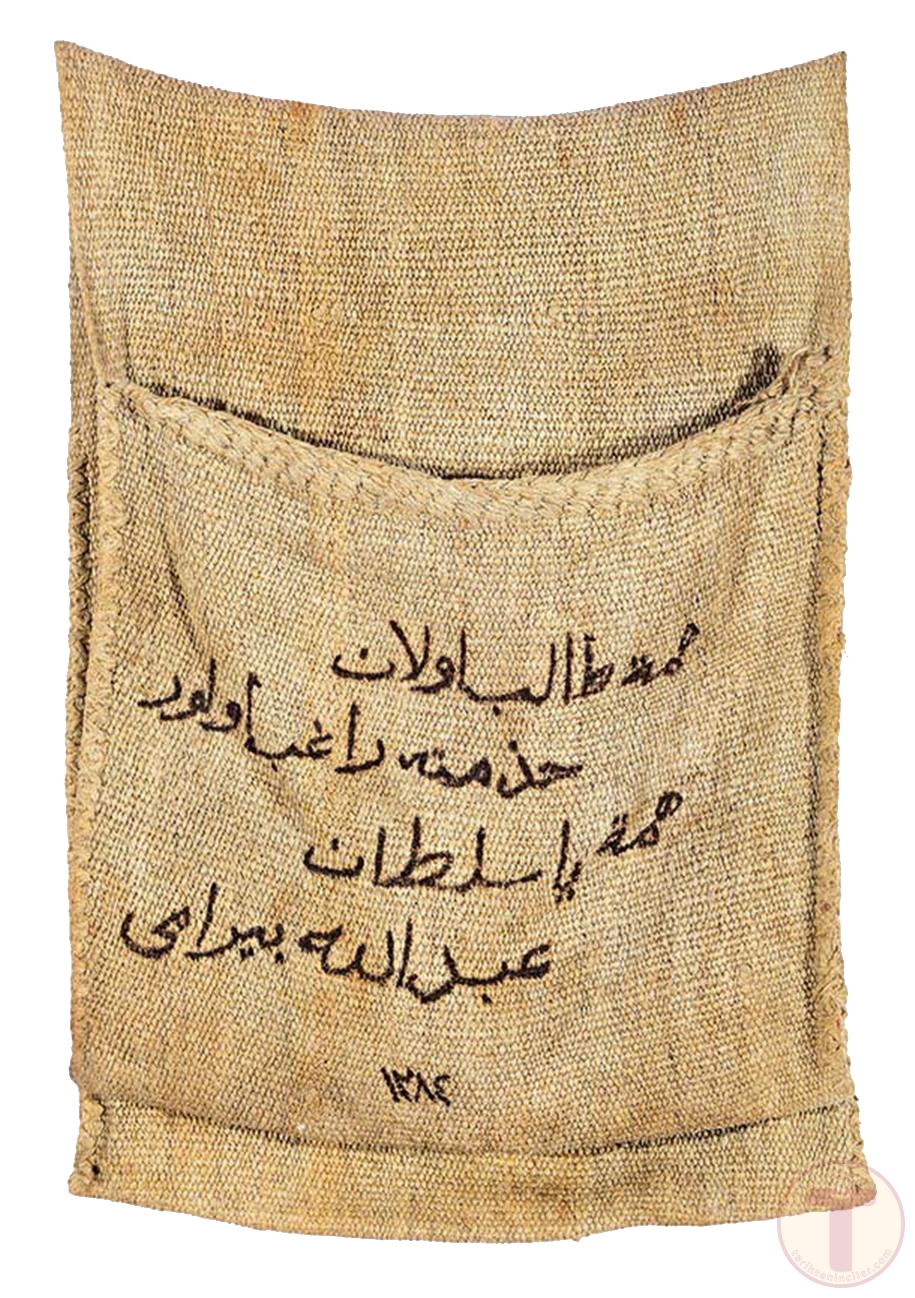 همة طالب اولان
حذمته راغب اولور
همة يا سلطان
عبد الله بيرامى
١٢٨٤
tarihteninciler.com